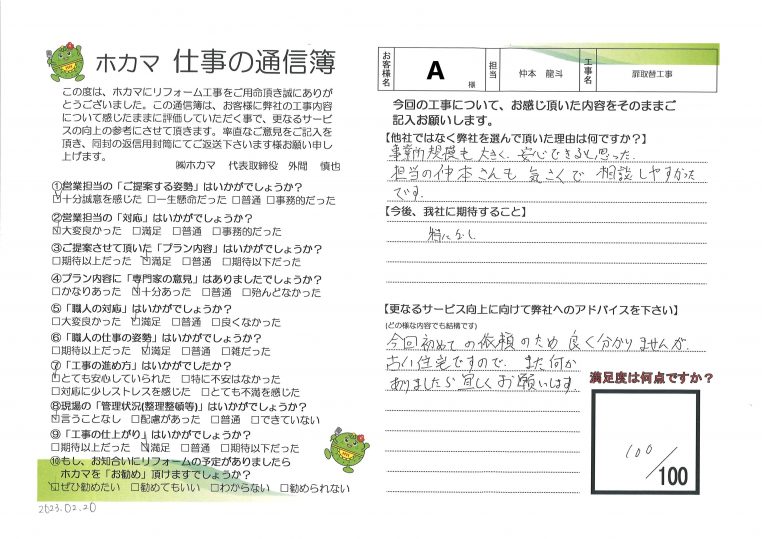 ホカマ 仕事の通信簿
この度は、ホカマにリフォーム工事をご用命頂き誠にありが
とうございました。この通信簿は、お客様に弊社の工事内容
について感じたままに評価していただく事で、更なるサービ
スの向上の参考にさせて頂きます。率直なご意見をご記入を
頂き、同封の返信用封筒にてご返送下さいます様お願い申し
上げます。
㈱ホカマ 代表取締役 外間 慎也
①営業担当の「ご提案する姿勢」はいかがでしょうか?
☑十分誠意を感じた □一生懸命だった □普通 □事務的だった
②営業担当の「対応」はいかがでしょうか?
☑大変良かった □満足 □普通 □事務的だった
③ご提案させて頂いた「プラン内容」はいかがでしょうか?
□期待以上だった ☑満足 □普通 □期待以下だった
④プラン内容に「専門家の意見」はありましたでしょうか?
□かなりあった ☑十分あった □普通 □殆んどなかった
⑤「職人の対応」はいかがでしょうか?
□大変良かった ☑満足 □普通 □良くなかった
⑥「職人の仕事の姿勢」はいかがでしょうか?
□期待以上だった ☑満足 □普通 □雑だった
⑦「工事の進め方」はいかがでしたか?
☑とても安心していられた □特に不安はなかった
□対応に少しストレスを感じた □とても不満を感じた
⑧現場の「管理状況(整理整頓等)」はいかがでしょうか?
☑言うことなし □配慮があった □普通 □できていない
⑨「工事の仕上がり」はいかがでしょうか?
□期待以上だった ☑満足 □普通 □期待以下だった
⑩もし、お知合いにリフォームの予定がありましたら
ホカマを「お勧め」頂けますでしょうか?
☑ぜひ勧めたい □勧めてもいい □わからない □勧められない
2023.02.20
お客様名 A 様 担当 仲本 龍斗 工事名 扉取替工事
今回の工事について、お感じ頂いた内容をそのままご
記入お願いします。
【他社ではなく弊社を選んで頂いた理由は何ですか?】
事業所規模も大きく、安心できると思った。
担当の仲本さんも気さくで相談しやすかった
です。
【今後、我社に期待すること】
特になし
【更なるサービス向上に向けて弊社へのアドバイスを下さい】
(どの様な内容でも結構です)
今回初めての依頼のため良く分かりませんが、
古い住宅ですので、また何か
ありましたら宜しくお願いします
満足度は何点ですか?
100/100